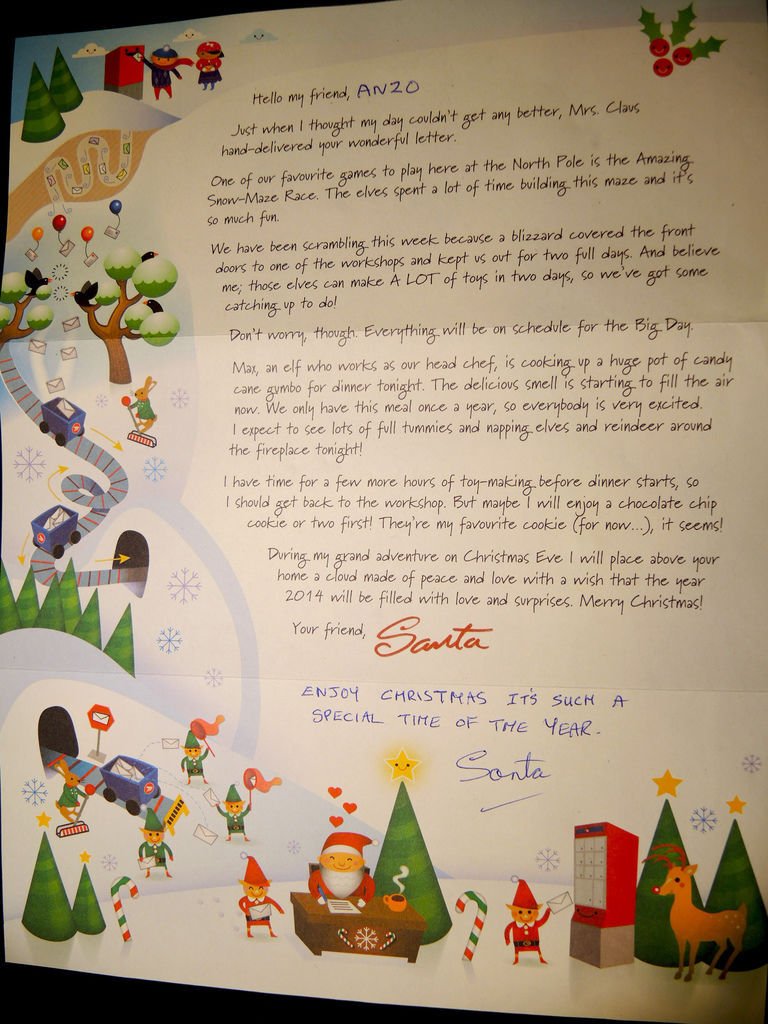 Hello my friend, ANZO
Just when I thought my day couldn't get any better, Mrs. Claus
hand-delivered your wonderful letter.
One of our favourite games to play here at the North Pole is the Amazing
Snow-Maze Race. The elves spent a lot of time building this maze and it's
so much fun.
We have been scrambling this week because a blizzard covered the front
doors to one of the workshops and kept us out for two full days. And believe
me; those elves can make A LOT of toys in two days, so we've got some
catching up to do!
Don't worry, though. Everything will be on schedule for the Big Day.
Max, an elf who works as our head chef, is cooking up a huge pot of candy
cane gumbo for dinner tonight. The delicious smell is starting to fill the air
now. We only have this meal once a year, so everybody is very excited.
I expect to see lots of full tummies and napping elves and reindeer around
the fireplace tonight!
I have time for a few more hours of toy-making before dinner starts, so
I should get back to the workshop. But maybe I will enjoy a chocolate chip
cookie or two first! They're my favourite cookie (for now...), it seems!
During my grand adventure on Christmas Eve I will place above your
home a cloud made of peace and love with a wish that the year
2014 will be filled with love and surprises. Merry Christmas!
Your friend, Santa
ENJOY CHRISTMAS IT'S SUCH A
SPECIAL TIME OF THE YEAR.
Santa